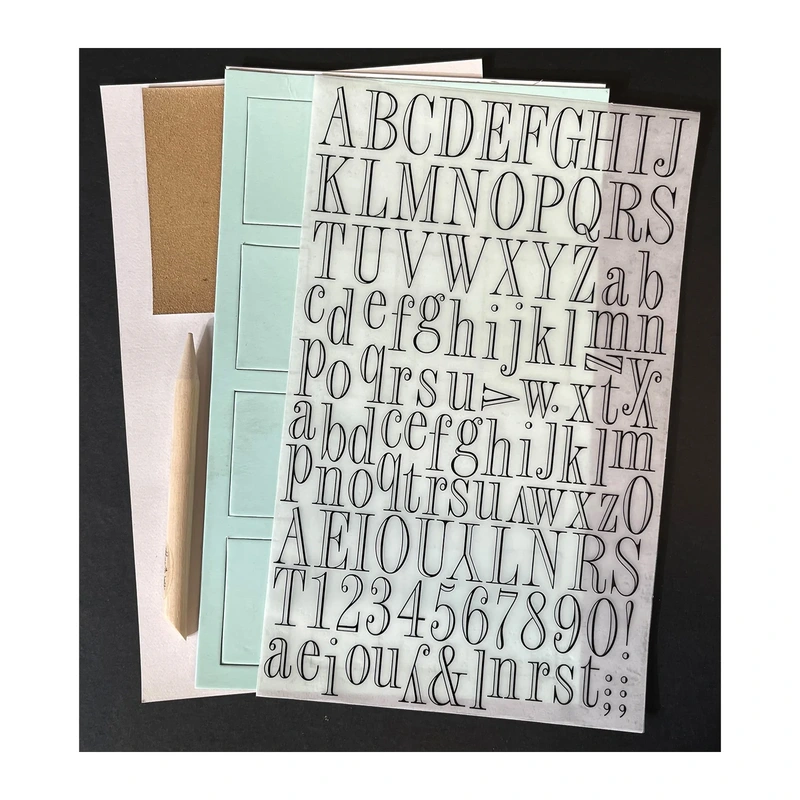 ABCDEFGHIJ
KLMNOPQRS
TUVWXYZab
cdefghijklmn
poqrsuvw.xtzy
abdcefghijklm
pnoqtrsuvwxzO
AEIOUYLNRS
T1234567890!
aeiouy&lnrst:;,